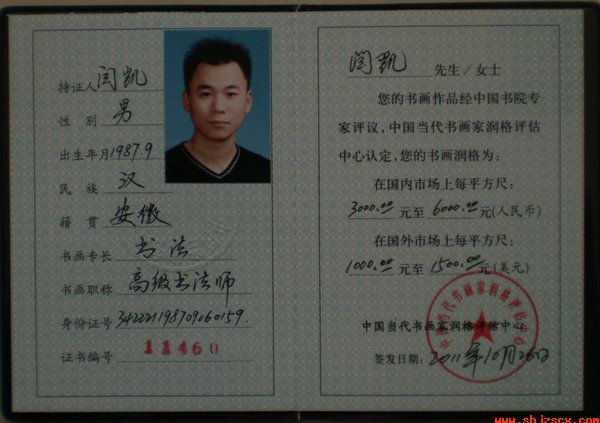 持证人 闫凯
性 别 男
出生年月 1987.9
民 族 汉
籍 贯 安徽
书画专长 书法
书画职称 高级书法师
身份证号 342221198709060159
证书编号 11460
闫凯 先生/女士
您的书画作品经中国书院专
家评议,中国当代书画家润格评估
中心认定,您的书画润格为:
在国内市场上每平方尺:
3000.00 元至 6000.00 元(人民币)
在国外市场上每平方尺:
1000.00 元至 1500.00 元(美元)
中国当代书画家润格评估中心
中国当代书画家润格评估中心
签发日期: 2011年10月26日
www.shjzscx.com